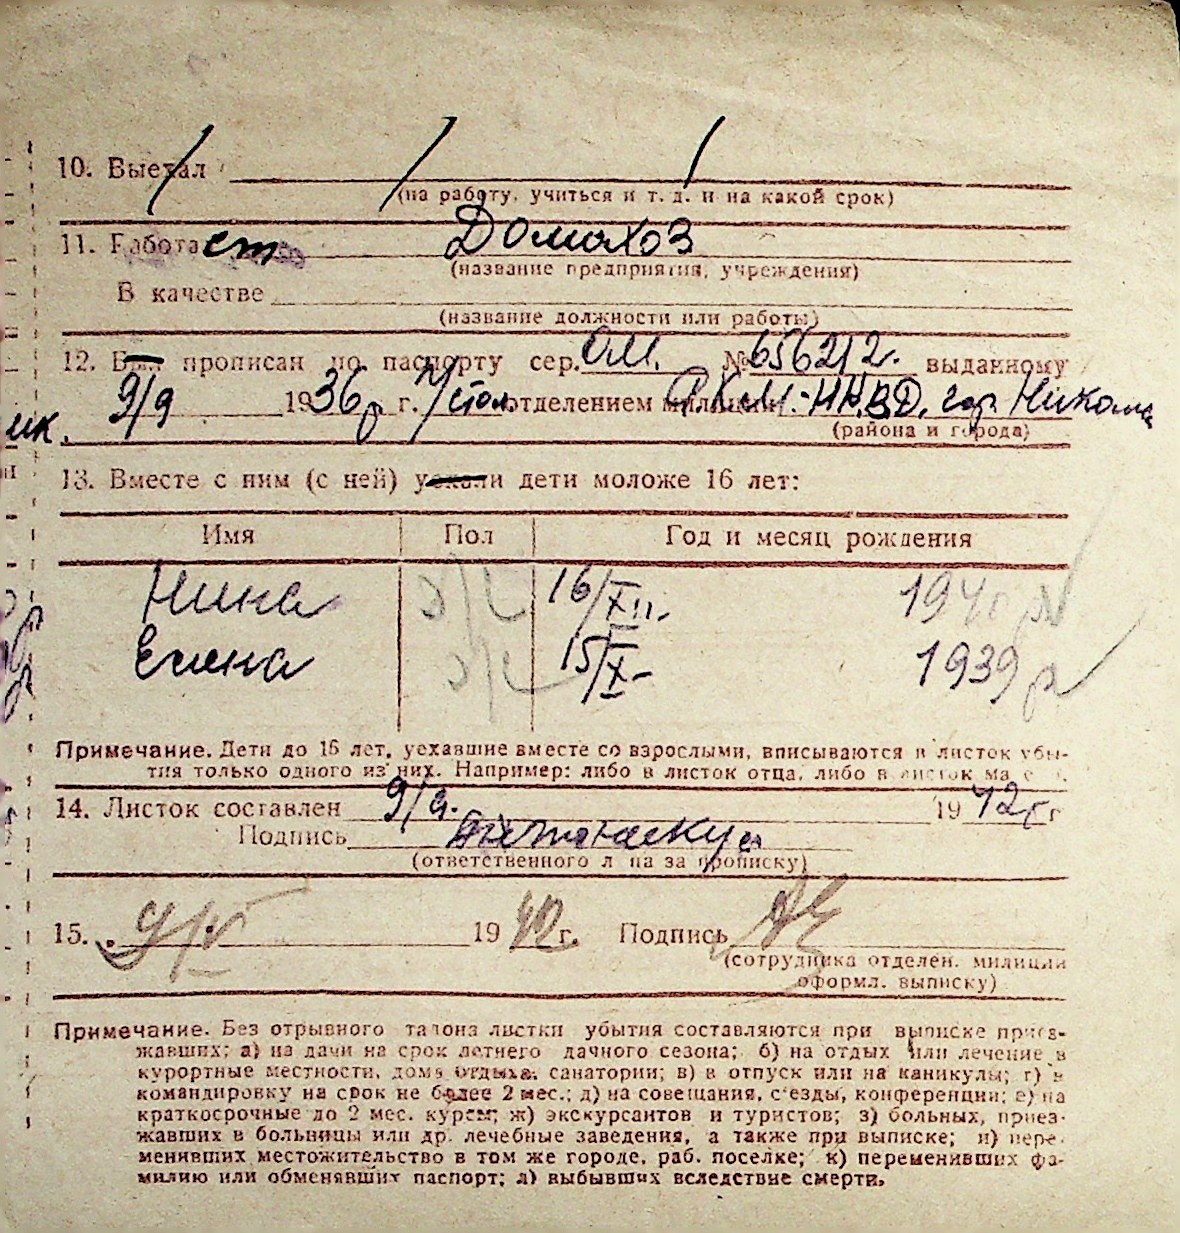 10. Выехал
(на работу, учиться и т. д. и на какой срок)
11. Работает Домохоз
(название предприятия, учреждения)
В качестве
(название должности или работы)
12. Был прописан по паспорту сер. ОМ. № 656212. выданному
9/9 1936 г. отделением милиции Р.К.М.-НКВД. гор. Никола
(района и города)
13. Вместе с ним (с ней) уехали дети моложе 16 лет:
Имя Пол Год и месяц рождения
Нина ж 16/XII. 1940 г
Елена ж 15/X- 1939 г
Примечание. Дети до 16 лет, уехавшие вместе со взрослыми, вписываются в листок убы-
тия только одного из них. Например: либо в листок отца, либо в листок ма
14. Листок составлен 9/9. 1942 г
Подпись
(ответственного лица за прописку)
15. 1942 г. Подпись
(сотрудника отделен. милиции
оформл. выписку)
Примечание. Без отрывного талона листки убытия составляются при выписке приез-
жавших; а) из дачи на срок летнего дачного сезона; б) на отдых или лечение в
курортные местности, дома отдыха, санатории; в) в отпуск или на каникулы; г) в
командировку на срок не более 2 мес.; д) на совещания, с'езды, конференции; е) на
краткосрочные до 2 мес. курсы; ж) экскурсантов и туристов; з) больных, приез-
жавших в больницы или др. лечебные заведения, а также при выписке; и) пере-
менивших местожительство в том же городе, раб. поселке; к) переменивших фа-
милию или обменявших паспорт; л) выбывших вследствие смерти.